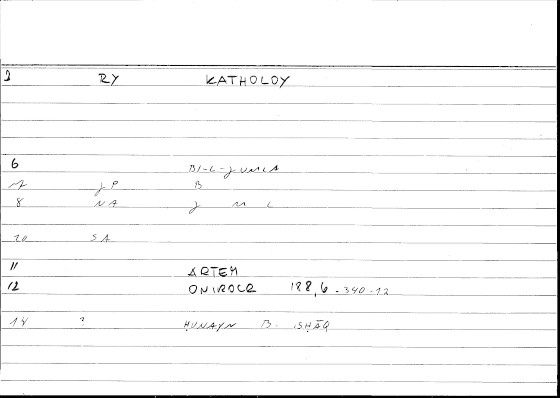 2 RY KATHOLOY
6 BI-L-JUMLA
7 JP B
8 NA J M L
10 SA
11 ARTEM
12 ONIROCR 188,6 - 340-12
14 ? ḤUNAYN B. ISḤĀQ